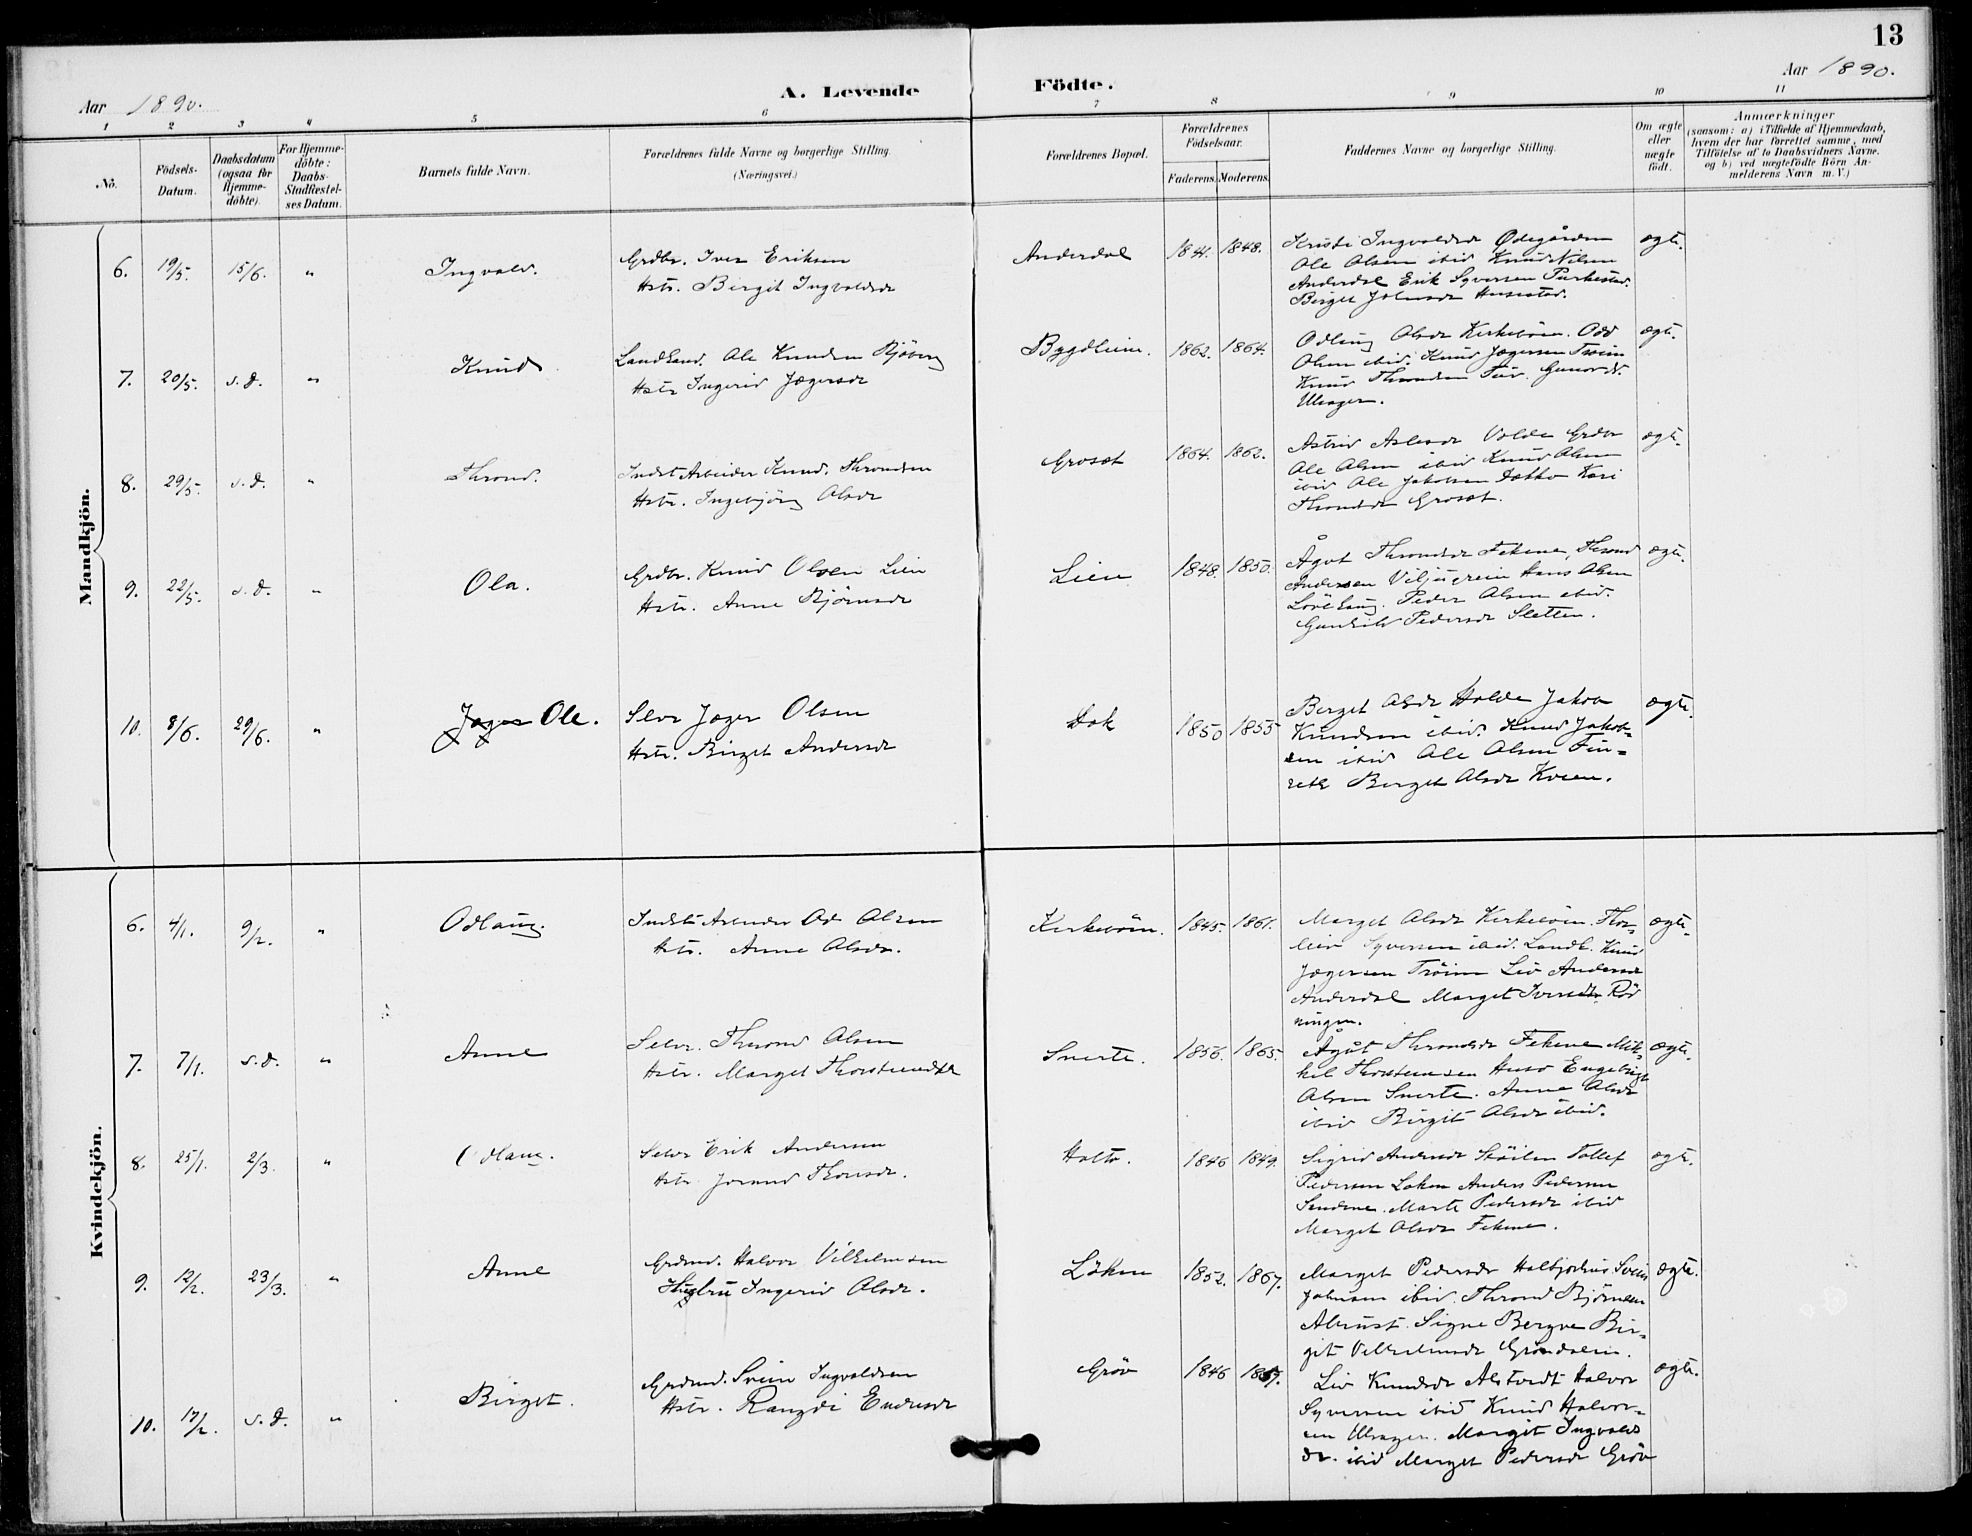 13
Aar 1890.
A. Levende Födte.
Aar 1890.
1 2 3 4 5 6 7 8 9 10 11
No.
Födsels-Datum.
Daabsdatum (ogsaa for Hjemme-döbte).
For Hjemme-döbte: Daabs-Stadfæstel-ses Datum.
Barnets fulde Navn.
Forældrenes fulde Navne og borgerlige Stilling. (Næringsvei.)
Forældrenes Bopæl.
Forældrenes Födselsaar.
Faderens. Moderens.
Faddernes Navne og borgerlige Stilling.
Om ægte eller uægte födt.
Anmærkninger
(saasom: a) i Tilfælde af Hjemmedaab,
hvem der har forrettet samme, med
Tilföielse af to Daabsvidners Navne.
og b) ved uægtefödte Börn An-
melderens Navn m. V.)
Mandkjön.
6. 19/5. 15/6. " Ingvald.
Grdbr. Iver Eriksen
Hstr. Birgit Ingvaldsdr
Anderdal 1841. 1848.
Kristi Ingvaldsdr Ødegården
Ole Olsen ibid Knud Nilsen
Anderdal Erik Syversen
Birget Johnsdr
ægte.
7. 20/5. s.d. " Knud
Landhand. Ole Knudsen Björberg
Hstr Ingerid Jægersdr
Bygdheim. 1862. 1864.
Odlaug Olsdr Kirkeböen. Odd
Olsen ibid Knud Jægersen Tröim
Knud Throndsen
Ulsager.
ægte.
8. 29/5. s.d. " Thrond.
Indst Arbeider Knud Throndsen
Hstr. Ingebjörg Olsdr
Grosæt 1864. 1862.
Astrid Aslesdr Volde Grdbr
Ole Olsen ibid Knud Olsen
ibid Ole Jakobsen Dokko Kari
Throndsdr Grosæt.
ægte.
9. 22/5. s.d. " Ola.
Grdbr. Knud Olsen Lien
Hstr. Anne Björnsdr
Lien 1848. 1850.
Ågot Throndsdr Fekene, Thrond
Andersen Viljugrein Hans Olsen
Peder Olsen ibid.
Gunhild Pedersdr Sletten.
ægte.
10. 8/6. 29/6. " Jæger Ole.
Selvr Jæger Olsen
Hstr. Birget Andersdr
Dok 1850 1855
Berget Olsdr Holde Jakob
Knudsen ibid. Knud Jakob-
sen ibid Ole Olsen Fin-
sett Berget Olsdr Kveen.
ægte.
Kvindekjön.
6. 4/1. 9/2. " Odlaug.
Indst Arbeider Od Olsen
Hstr. Anne Olsdr.
Kirkeböen. 1845. 1861.
Marget Olsdr Kirkeböen. Thor-
leiv Syversen ibid. Landh. Knud
Jægersen Tröim Liv Andersdr
Anderdal Marget Iversdr Röd
ningen.
ægte.
7. 7/1. s.d. " Anne
Selvr. Thrond Olsen
Hstr. Marget Thorsteinsdtr
Snerte. 1856. 1865.
Ågåt Throndsdr Fekene Mik-
kel Thorsteinsen Huso Engebrigt
Olsen Snerte. Anne Olsdr
ibid Birgit Olsdr ibid.
ægte.
8. 25/1. 2/3. " Odlaug.
Selvr Erik Andersen
Hstr Jorand Thorsdr.
Holto. 1846 1849.
Sigrid Andersdr Stöilen Tollef
Pedersen Löken Anders Pedersen
Sendene. Marte Pedersdr ibid
Marget Olsdr Fekene.
ægte.
9. 12/2. 23/3. " Anne
Grdmd. Halvor Vilhelmsen
Hustru Ingerid Olsdr.
Löken 1852. 1867.
Marget Pedersdr Halbjorhus Svein
Johnsen ibid. Thrond Björnsen
Alrust. Signe Bergve Bir-
git Vilhelmsdr Gröndalen.
ægte.
10. 17/2. s.d. " Birget.
Grdmd. Svein Ingvaldsen
Hstr. Rangdi Endresdr
Gröv 1846 1857.
Liv Knudsdr Alstvedt Halvor
Syversen ibid Knud Halvor-
sen Ulsager. Margit Ingvalds
dr. ibid Marget Pedersdr Gröv
ægte.